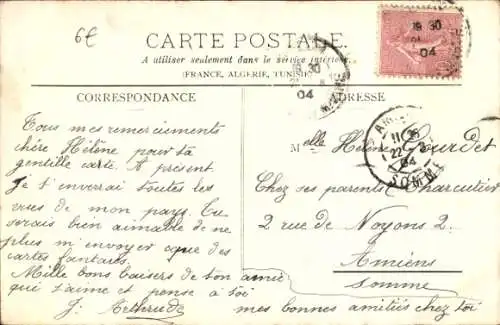 6€
CARTE POSTALE.
A utiliser seulement dans le service intérieur
(FRANCE, ALGERIE, TUNISIE)
CORRESPONDANCE
Tous mes remerciements
chère Hélène pour ta
gentille carte. A présent
je t'enverai toutes les
vues de mon pays. Tu
serais bien aimable de ne
plus m'envoyer que des
cartes fantaises.
Mille bons baisers de ton amie
qui t'aime et pense à toi.
J.
mes bonnes amitiés chez toi
ADRESSE
Melle Hélène Gourdet
Chez ses parents Charcutier
2 rue de Noyons 2.
Amiens
Somme
19 30
04
30
04
11 35
22
04
SOMME